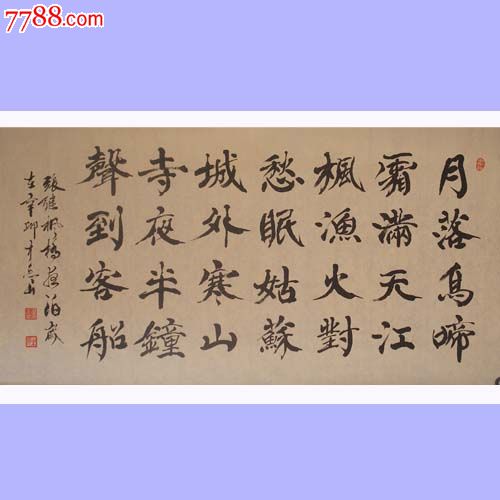 7788.com
月落烏啼
霜滿天江
楓漁火對
愁眠姑蘇
城外寒山
寺夜半鐘
聲到客船
張継楓橋夜泊歲
在辛卯